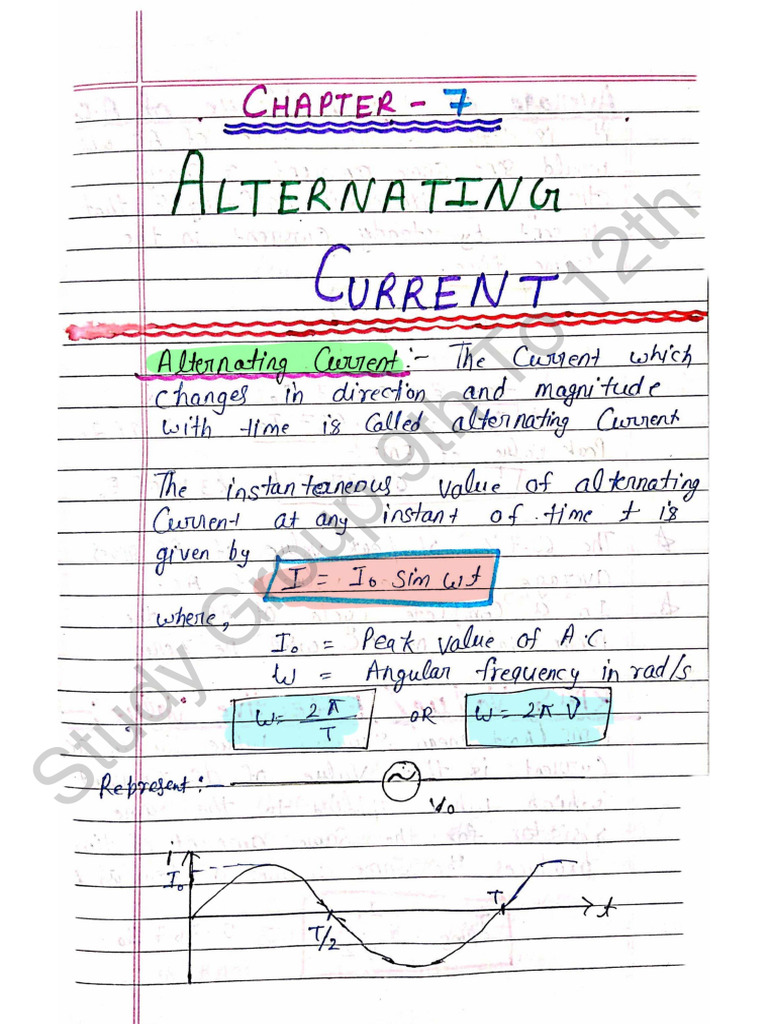 CHAPTER - 7
ALTERNATING
CURRENT
Alternating Current :- The Current which
changes in direction and magnitude
with time is Called alternating Current
The instanterneous value of alternating
Current at any instant of time t is
given by
I = I₀ sin ωt
where,
I₀ = Peak value of A.C.
ω = Angular frequency in rad/s
ω = 2π/T OR ω = 2π ν
Represent :-
V₀
i
I₀
T/2
T
t
Study Group 9th To 12th